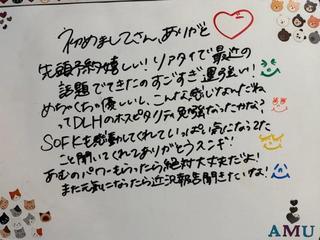 初めましてさん、ありがと
先頭予約嬉しい！リアタイで最近の
話題でてきたのすごすぎ運強い！
めちゃくちゃ優しいし、こんな感じなんだね
ってDLHのホスピタリティ勉強なったかな？
SOFKも感動してくれていっぱい気になうた
こと聞いてくれてありがとうスンギ！
あむのパワーもらったら絶対大丈夫だよ！
また元気になったら近況報告聞きたいな！
AMU